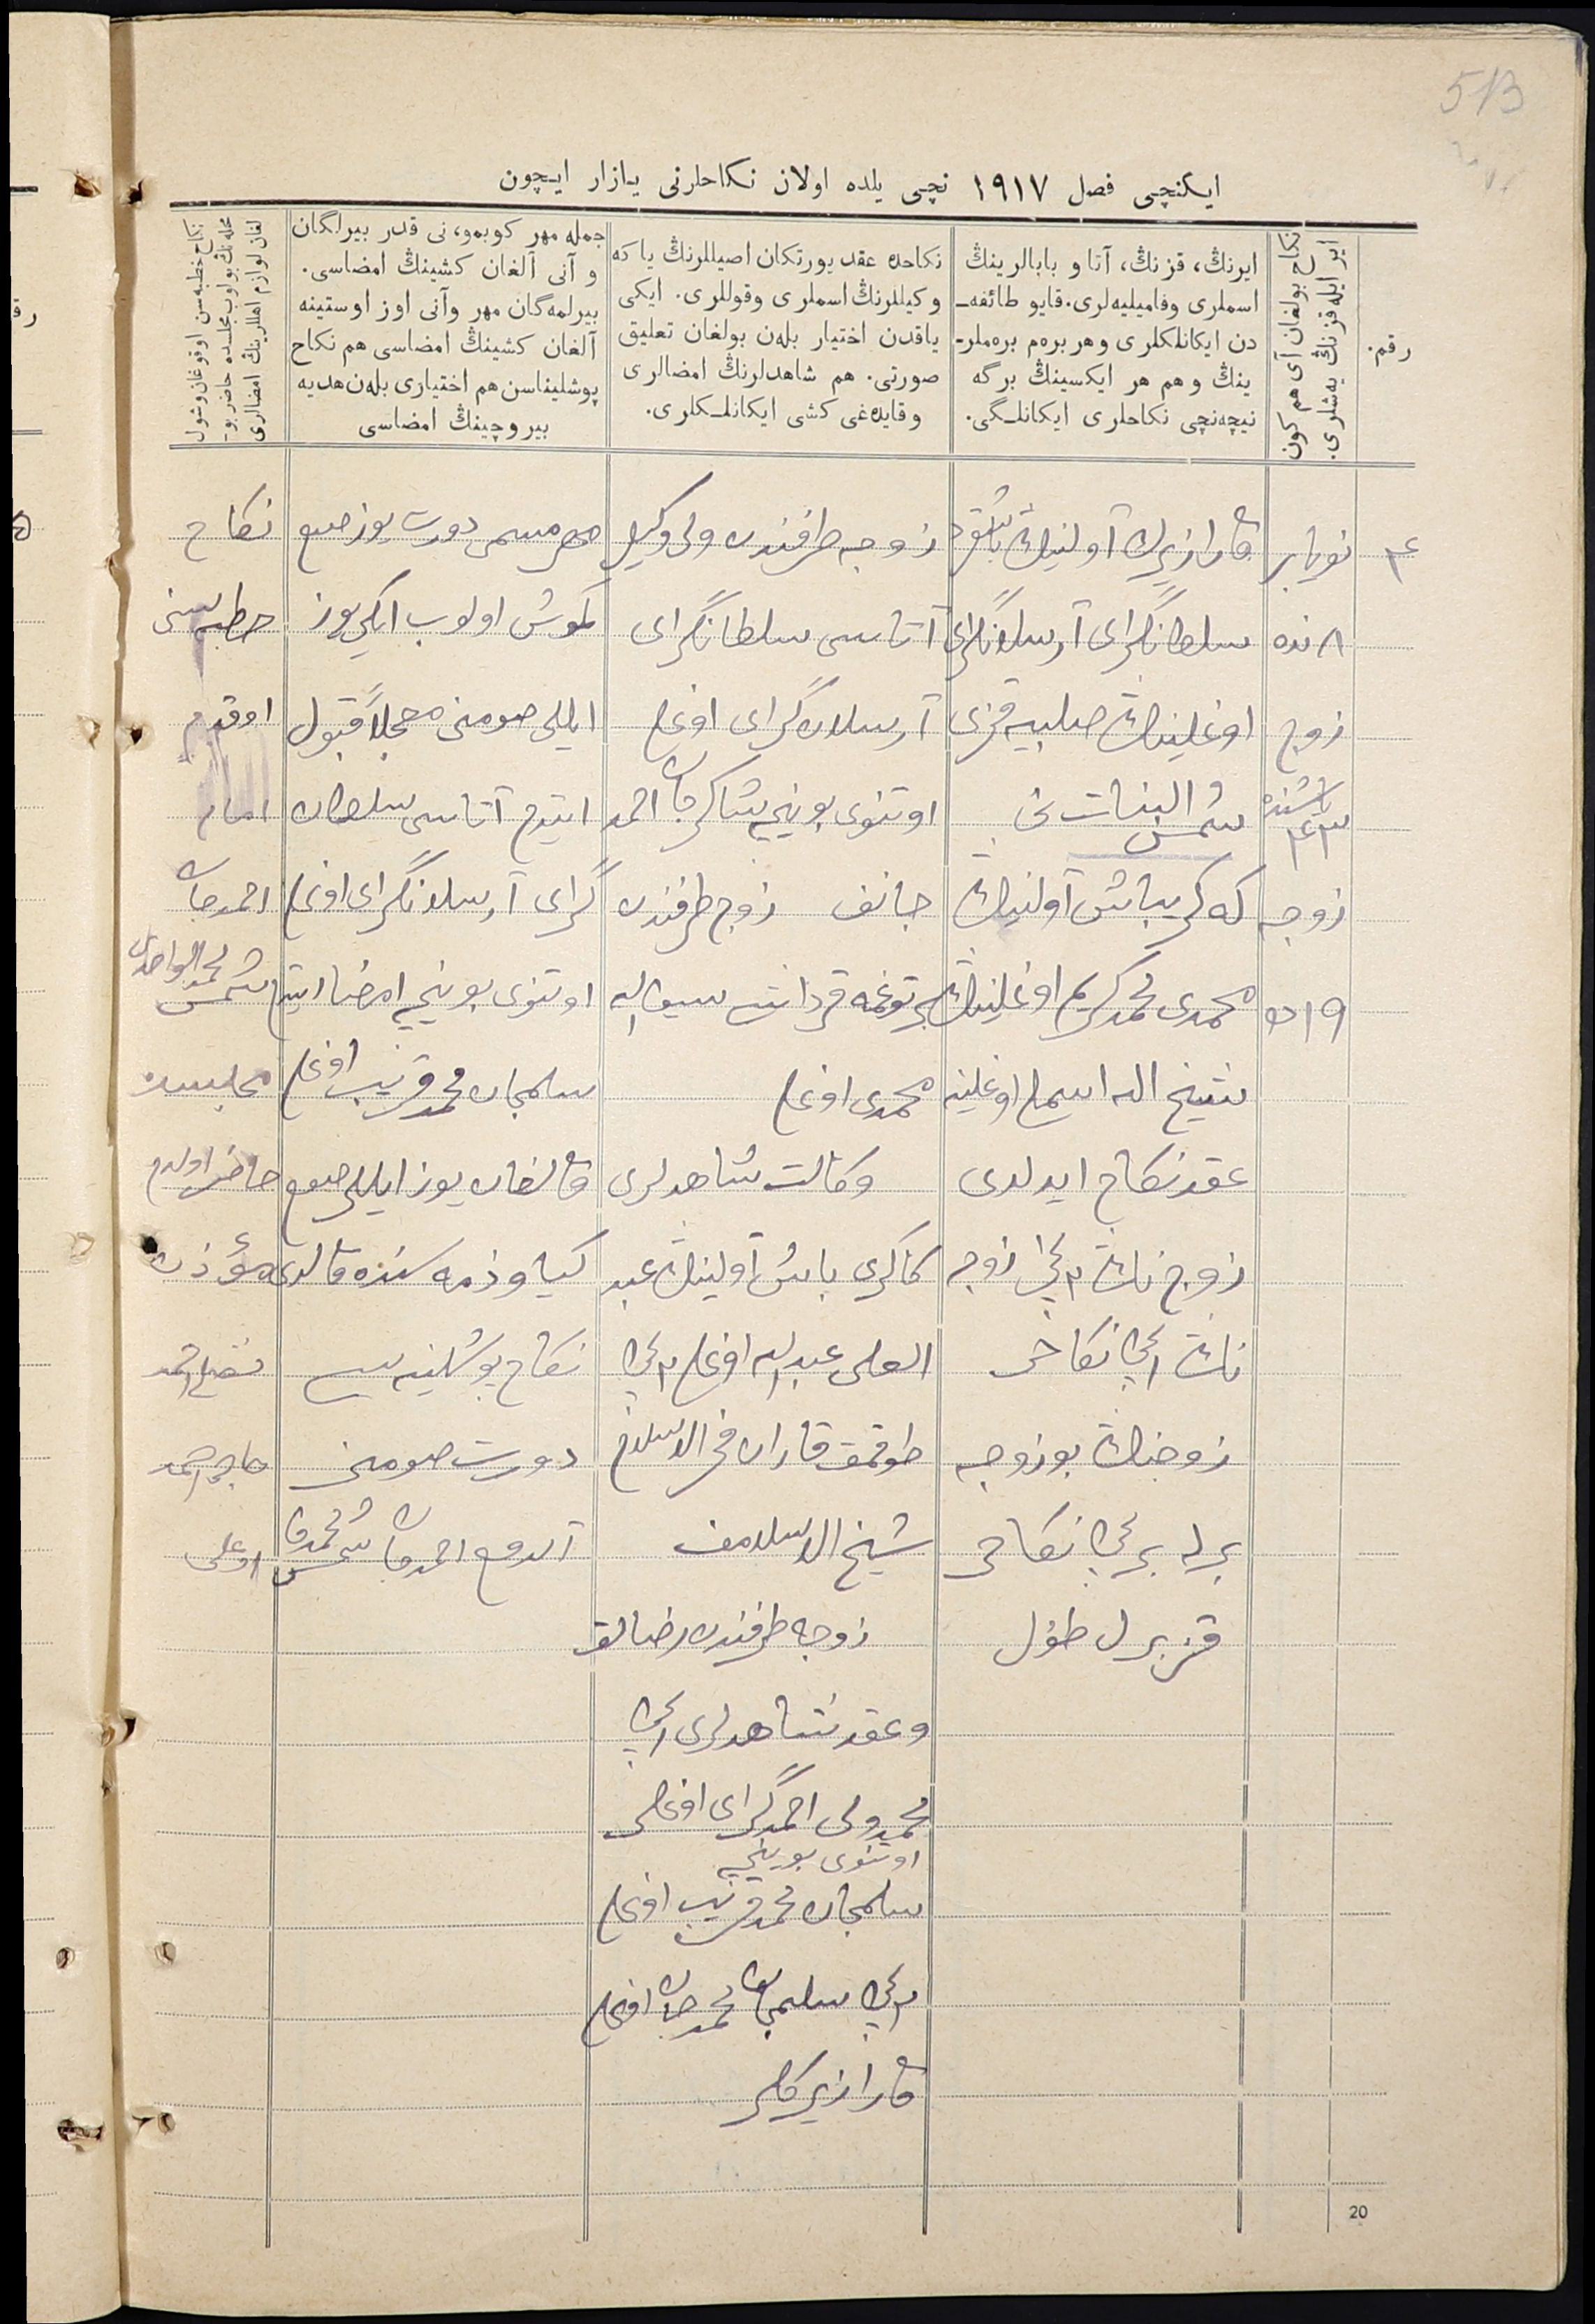 513
ایکنچی فصل ١٩١٧ نچی یلده اولان نکاحلرنی یازار ایچون
رقم.
نکاح بولغان آی هم کون
ایر ایله قزنڭ یەشلری.
ایرنڭ، قزنڭ، آتا و بابالرینڭ
اسملری وفامیلیه‌لری. قایو طائفه‌ـ
دن ایکانلکلری و هر بره‌م بره‌ملرـ
ینڭ و هم هر ایکسینڭ برگه
نیچه‌نچی نکاحلری ایکانلـگی.
نکاحده عقد یورتکان اصیللرنڭ یا که
وکیللرنڭ اسملری وقوللری. ایکی
یاقدن اختیار بله‌ن بولغان تعلیق
صورتی. هم شاهدلرنڭ امضالری
وقایده‌غی کشی ایکانلـکلری.
جمله مهر کوبمو، نی قدر بیرلگان
و آنی آلغان کشینڭ امضاسی.
بیرلمه‌گان مهر وآنی اوز اوستینه
آلغان کشینڭ امضاسی هم نکاح
پوشلیناسن هم اختیاری بله‌ن هدیه
بیروچینڭ امضاسی
نکاح خطبه‌سن اوقوغان وشول
محله‌نڭ بولوب مجلسده حاضر بوـ
لغان لوازم اهللرینڭ امضالری
٤
نویابر
٨ نده
زوج
یاشنده
٤٣
زوجه
١٩ ده
آولینڭ باشقرد
سلطانگرای آرسلانگرای
اوغلینڭ صلبیه قزی
شمس البنات نی
که کریباش آولینڭ
محمدی محمدکریم اوغلینڭ
شیخ الله اسماع اوغلینه
عقد نکاح ایدلدی
زوج نڭ ٢ نچی زوجه
نڭ ١نچی نکاحی
زوجنڭ بو زوجه
برله برنچی نکاحی
قز برل طول
زوجه طرفندن ولی وکیل
آتاسی سلطانگرای
آرسلان گرای اوغلی
اوتنوی بوینچه شاکرجان احمد
جانف زوج طرفندن
برتوغمه قرداش سیف الله
محمدی اوغلی
وکالت شاهدلری
کاکری باش آولینڭ عبد
العلی عبدالله اوغلی ٢نچی
فخرالاسلام
شیخ الاسلامف
زوجه طرفندن رضالق
وعقد شاهدلری ١نچی
محمدولی احمدگرای اوغلی
اوتنوی بوینچه
سلمجان محمدقزیب اوغلی
٢نچی سلیمجان محمدجان اوغلی
مهر مسمی دورت یوز صوم
کموش اولوب ایکی یوز
ایللی صومنی معجلاً قبول
ایتدم آتاسی سلطان
گرای آرسلانگرای اوغلی
اوتنوی بوینچه امضا ایتدم
سلمجان محمدقزیب اوغلی
قالغان یوز ایللی صوم
کیاو ذمه سنده قالدی
نکاح پوشلینه سی
دورت صومنی
آلدوم احمدجان شمس محمد
نکاح
خطبه سنی
اوقدم
امام
احمدجان
شمس محمد
مجلسده
حاضر اولدم
مؤذن
اوغلی
20